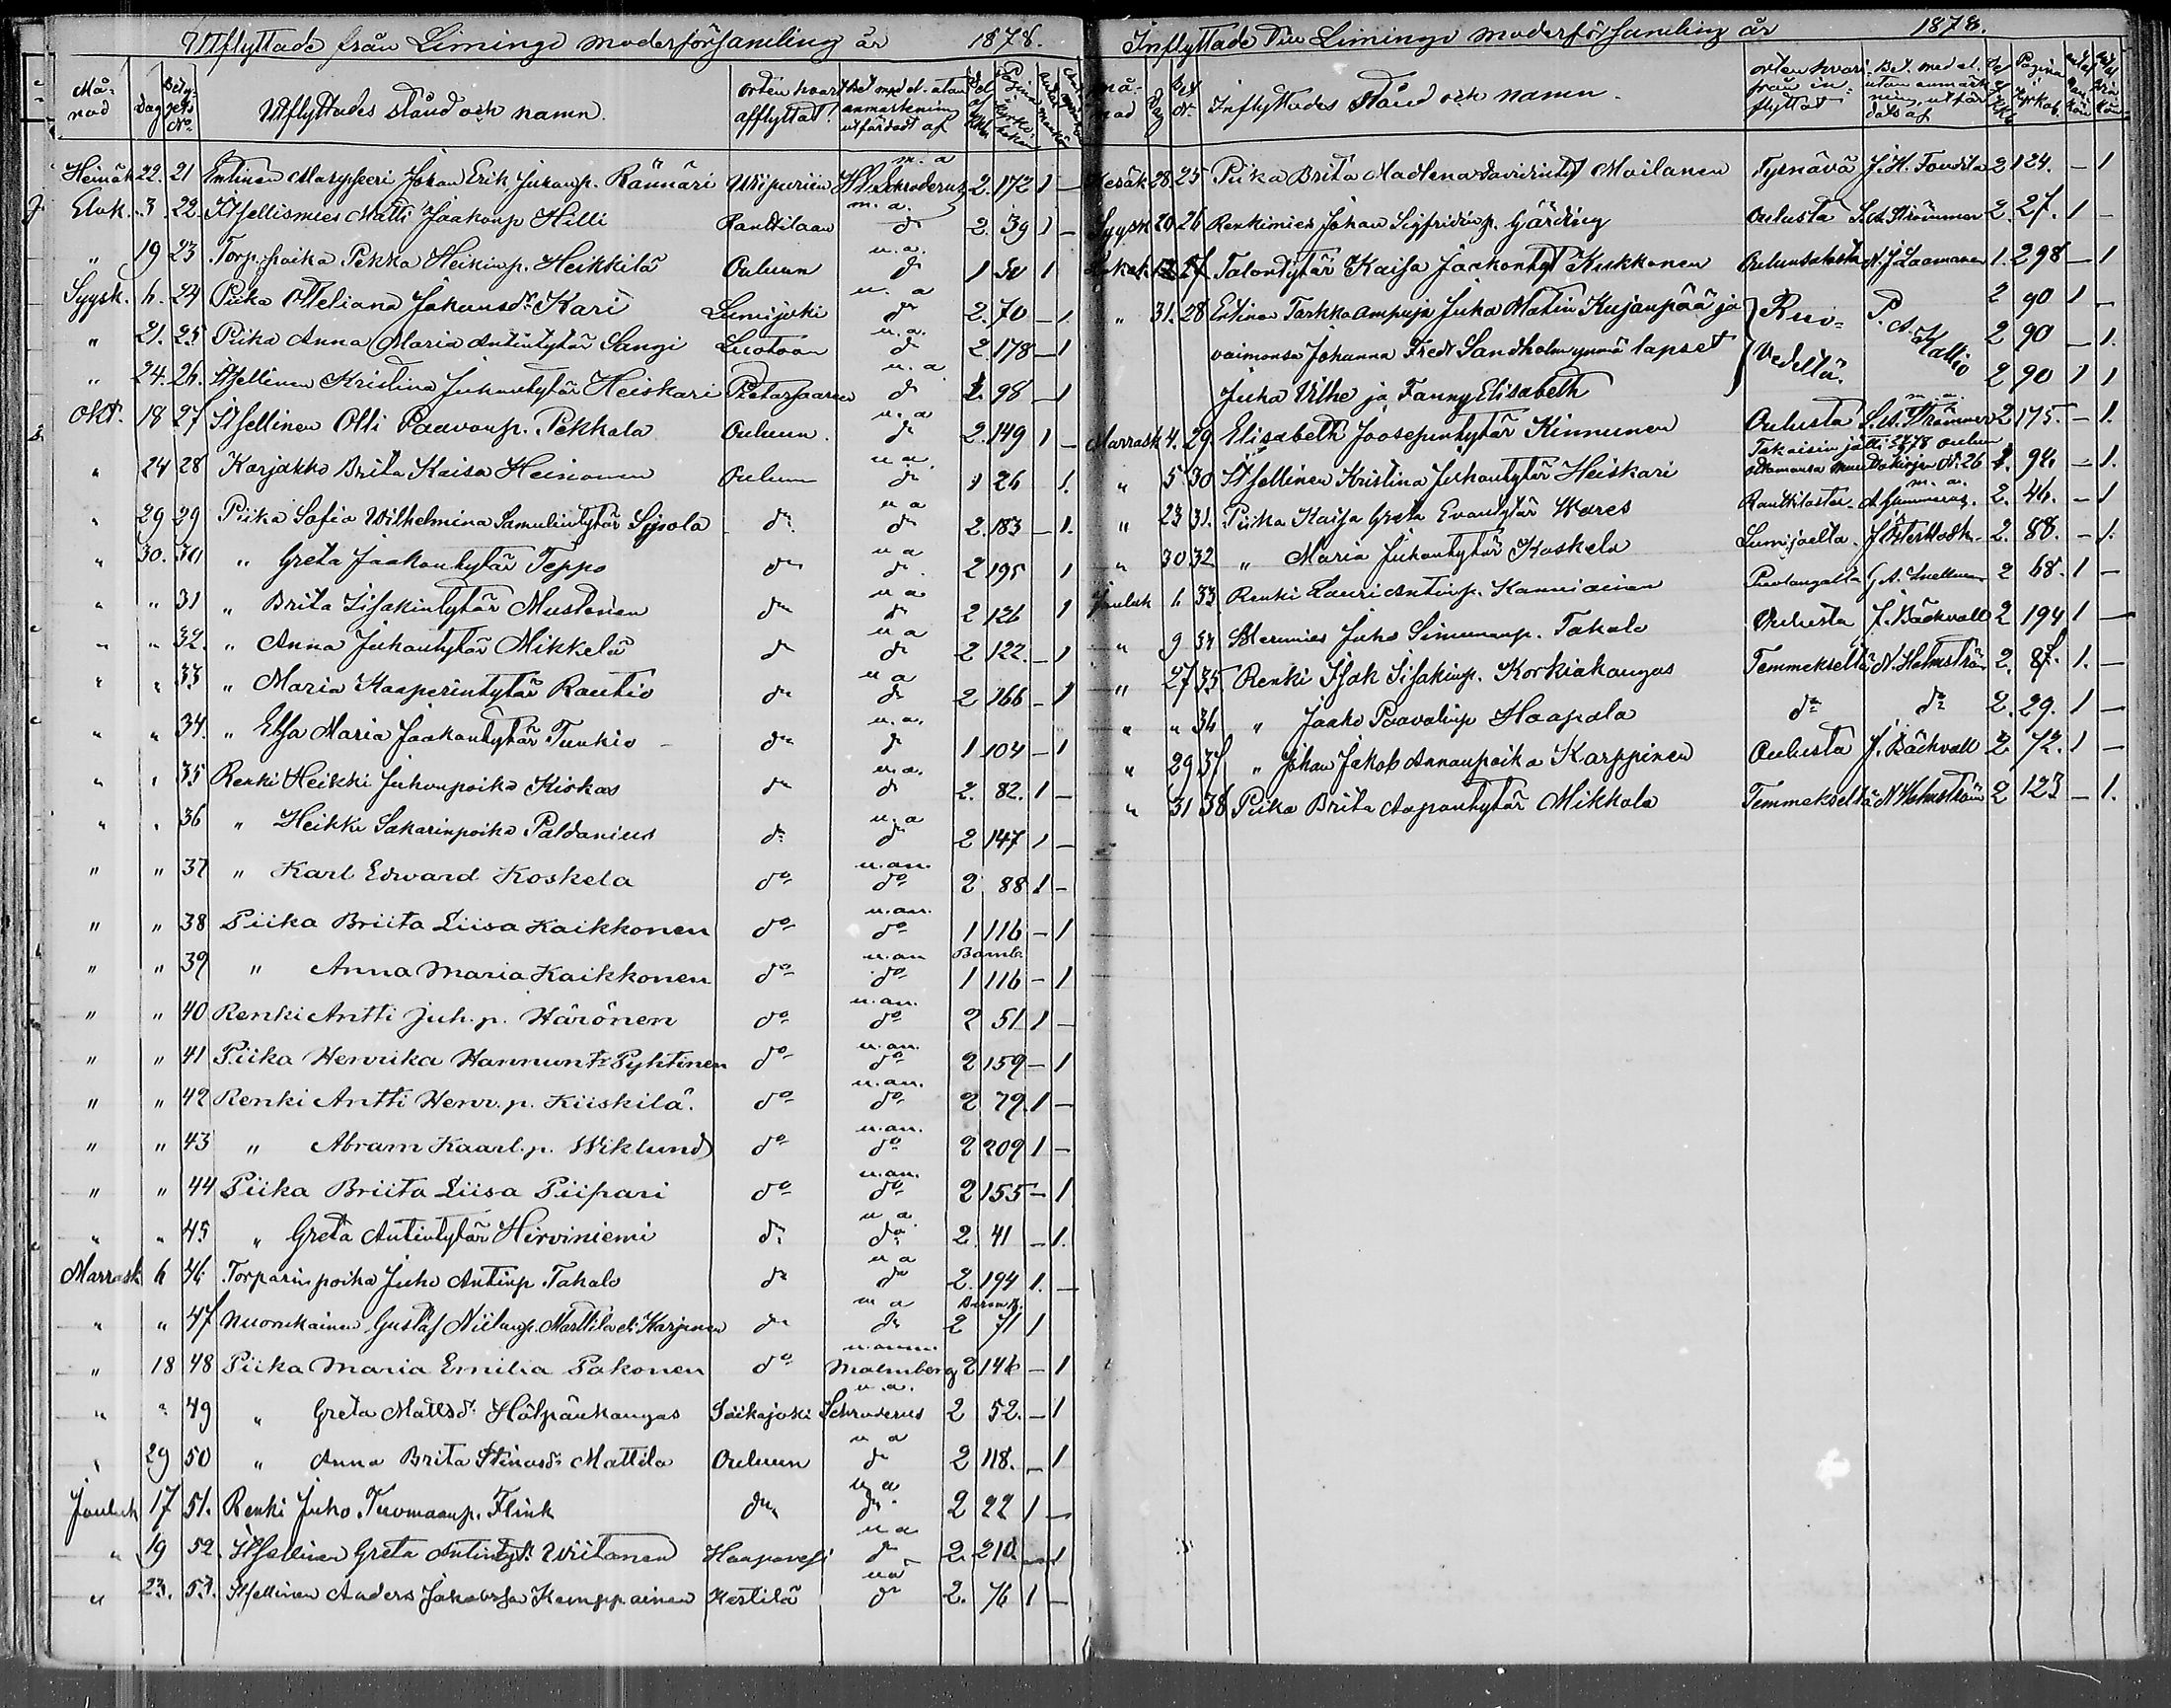 Utflyttade från Limingo moderförsamling år 1878.
Må-nad Dag Betygets No Utflyttades stånd och namn. Orten hvart afflyttat. Bet. med el. utan anmärkning utfärdadt af Pagina kyrkoboken
Heinäk 22. 21 Entinen Johan Erik Juhanp. Rännäri Wiipuriin m. a H. Schroderus 2. 172 1 —
Elok. 3. 22. Itsellismies Matti Jaakonp Hilli Rantsilaan m. a. do 2. 39 1 —
" 19 23 Torp.poika Pekka Heikinp. Heikkilä Ouluun u. a. do 1 50 1
Syysk. 6. 24 Piika Otteliana Johansdr Kari Lumijoki u. a do 2. 70 — 1.
" 21. 25 Piika Anna Maria Antintytär Sangi Luotoon u. a. do 2 178 — 1
" 24. 26. Itsellinen Kristina Juhontytär Heiskari Pietarsaareen u. a do 1. 98 — 1
Okt. 18 27 Itsellinen Olli Paavonp. Pekkala Ouluun. u. a do 2. 149 1 —
" 24 28 Karjakko Brita Kaisa Heinonen Ouluun u a. do 1 26 1.
" 29 29 Piika Sofia Wilhelmina Samulintytär Sipola do u a do 2. 183 — 1.
" 30. 30 " Greta Jaakontytär Teppo do u a do 2 195 1
" " 31 " Brita Iisakintytär Mustonen do u a do 2 126 1
" " 32. " Anna Juhontytär Mikkelä do u a do 2 122. — 1
" " 33 " Maria Kasperintytär Rautio do u a do 2 166 — 1
" " 34. " Elsa Maria Jaakontytär Tunkio do u. a. do 1 104 — 1
" " 35 Renki Heikki Juhonpoika Kiskas do u. a. do 2. 82. 1 —
" " 36 " Heikki Sakarinpoika Paldanius do u. a do 2 147 1 —
" " 37 " Karl Edward Koskela do u. an. do 2 88 1 —
" " 38 Piika Briita Liisa Kaikkonen do u. an. do 1 116 — 1
" " 39 " Anna Maria Kaikkonen do u. an do 1 116 — 1
" " 40 Renki Antti Juh. p. Härönen do u. an. do 2 51 1 —
" " 41 Piika Henrika Hannunt. Pyhtinen do u. an. do 2 159 — 1
" " 42 Renki Antti Henr. p. Kiiskilä. do u. an. do 2 79. 1 —
" " 43 " Abram Kaarl. p. Wiklund do u. an. do 2 209 1 —
" " 44 Piika Briita Liisa Piipari do u. an. do 2 155 — 1
" " 45 " Greta Antintytär Hirviniemi do u a do 2. 41 — 1.
Marrask 6 46 Torparinpoika Juho Antinp Takalo do u a do 2. 194 1. —
" " 47 Nuorukainen Gustaf Niilonp. Marttila eli Karjunen do m a do 2 71 1
" 18 48 Piika Maria Emilia Pakonen do u. anm. Malmberg 2 146 — 1
" " 49 " Greta Mattsdr Hätpänkangas Siikajoki u. a. Schroderus 2 52. — 1
" 29 50 " Anna Brita Stinasdr Mattila Ouluun u a do 2 118. — 1
Jouluk 17 51. Renki Juho Tuomaanp. Flink do u a do 2 22 1 —
" 19 52. Itsellinen Greta Antintytär Wiitanen Haapavesi u a do 2. 210. — 1
" 23. 53. Itsellinen Anders Jakobsson Kemppainen Kestilä u a do 2. 76 1 —
Inflyttade Till Limingo moderförsamling år 1878.
Må-nad Dag Bet. No. Inflyttades stånd och namn. Orten hvarifrån inflyttat Bet. med el. utan anmärkning utfärdats af Pagina kyrkob.
Kesäk 28. 25 Piika Brita Madlena Davidintyt Moilanen Tyrnävä J. H. 2 124. — 1
Syysk 20. 26 Renkimies Johan Sigfridinp. Gärding Oulusta S. A. Strömmer 2. 27. 1 —
Lokak 27 Talontytär Kaisa Jaakontyt Kukkonen Oulunsalosta N. J. Laamanen 1. 298 — 1
" 31. 28 Entinen Tarkka ampuja Juho Matin Kujanpää ja 2 90 1 —
vaimonsa Johanna Fredr Sandholm ynnä lapset Ruovedeltä. P. A. Kallio 2 90 — 1.
Juho Vilhe ja Fanny Elisabeth 2 90 1 1
Marrask 4. 29. Elisabeth Joosepintytär Kinnunen Oulusta m. a. S. A. Strömmer 2 175. — 1.
" 5 30 Itsellinen Kristina Juhontytär Heiskari Takaisin muuttokirjan No. 26 1. 98. — 1.
" 23 31. Piika Kaisa Greta Evantytär Wares Rantsilasta m. a. 2. 46. — 1
" 30 32 " Maria Juhontytär Koskela Lumijoelta. J. Österbladh. 2. 88. — 1.
Jouluk 6 33 Renki Lauri Antinp. Kanniainen Paavolasta G. A. Snellman 2 68. 1 —
" 9 34 Juho Simunanp. Takalo Oulusta J. Bäckvall 2 194 1 —
" 27 35. Renki Isak Iisakinp. Korkiakangas Temmekseltä N. Holmström 2. 87. 1. —
" " 36 " Jaako Paavalinp Haapala do do 2. 29. 1 —
" 29 37 " Johan Jakob Annanpoika Karppinen Oulusta J. Bäckvall 2 72. 1 —
" 31 38 Piika Brita Aapontytär Mikkola Temmekseltä N. Holmström 2 123 — 1.